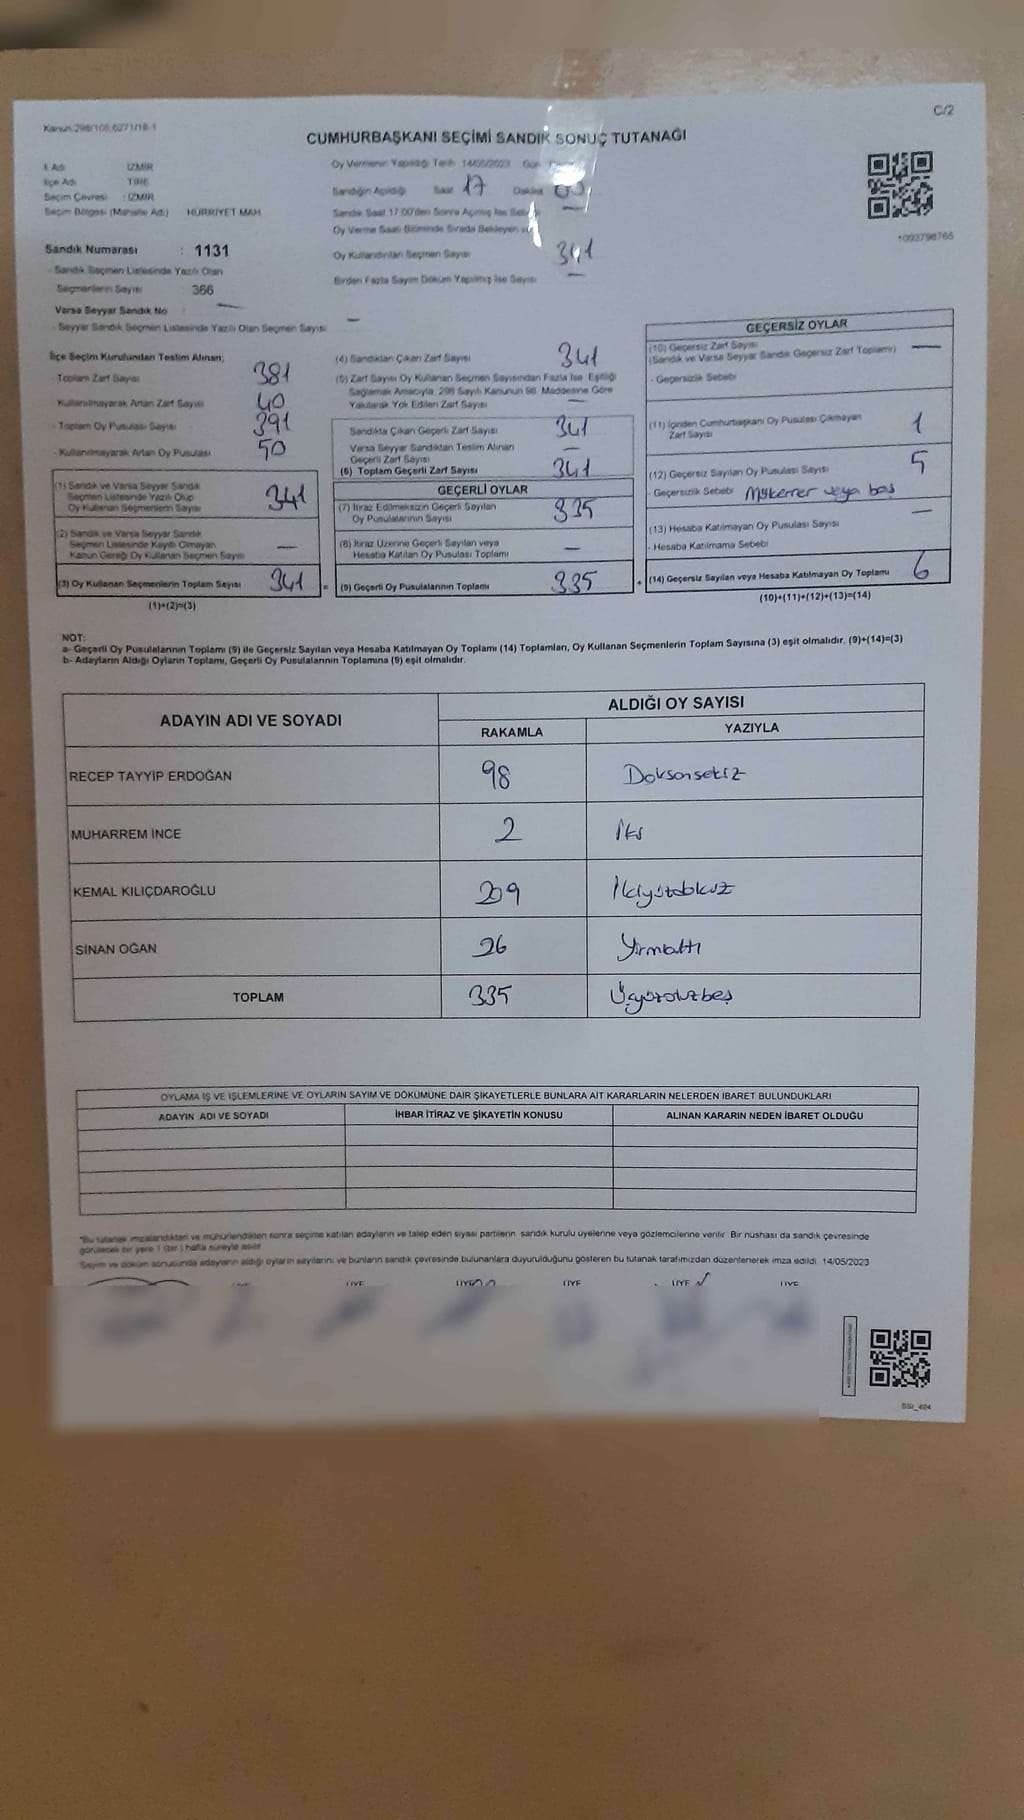 Kanun:298/105,6271/18-1
C/2
CUMHURBAŞKANI SEÇİMİ SANDIK SONUÇ TUTANAĞI
İl Adı : İZMİR
İlçe Adı : TİRE
Seçim Çevresi : İZMİR
Seçim Bölgesi (Mahalle Adı) HÜRRİYET MAH.
Sandık Numarası : 1131
- Sandık Seçmen Listesinde Yazılı Olan
Seçmenlerin Sayısı : 366
Varsa Seyyar Sandık No : —
- Seyyar Sandık Seçmen Listesinde Yazılı Olan Seçmen Sayısı —
Oy Vermenin Yapıldığı Tarih 14/05/2023 Gün
Sandığın Açıldığı Saat 17 Dakika
Sandık Saat 17:00'den Sonra Açılmış İse
Oy Verme Saati Bitiminde Sırada Bekleyen —
Oy Kullandırılan Seçmen Sayısı 341
Birden Fazla Sayım Döküm Yapılmış İse Sayısı —
1093798765
İlçe Seçim Kurulundan Teslim Alınan;
- Toplam Zarf Sayısı 381
Kullanılmayarak Artan Zarf Sayısı 40
- Toplam Oy Pusulası Sayısı 391
- Kullanılmayarak Artan Oy Pusulası 50
(1) Sandık ve Varsa Seyyar Sandık
Seçmen Listesinde Yazılı Olup
Oy Kullanan Seçmenlerin Sayısı 341
(2) Sandık ve Varsa Seyyar Sandık
Seçmen Listesinde Kayıtlı Olmayan
Kanun Gereği Oy Kullanan Seçmen Sayısı —
(3) Oy Kullanan Seçmenlerin Toplam Sayısı 341 =
(1)+(2)=(3)
(4) Sandıktan Çıkan Zarf Sayısı 341
(5) Zarf Sayısı Oy Kullanan Seçmen Sayısından Fazla İse, Eşitliği
Sağlamak Amacıyla, 298 Sayılı Kanunun 98. Maddesine Göre
Yakılarak Yok Edilen Zarf Sayısı —
Sandıkta Çıkan Geçerli Zarf Sayısı 341
Varsa Seyyar Sandıktan Teslim Alınan
Geçerli Zarf Sayısı —
(6) Toplam Geçerli Zarf Sayısı 341
GEÇERLİ OYLAR
(7) İtiraz Edilmeksizin Geçerli Sayılan
Oy Pusulalarının Sayısı 335
(8) İtiraz Üzerine Geçerli Sayılan veya
Hesaba Katılan Oy Pusulası Toplamı —
(9) Geçerli Oy Pusulalarının Toplamı 335 +
GEÇERSİZ OYLAR
(10) Geçersiz Zarf Sayısı
(Sandık ve Varsa Seyyar Sandık Geçersiz Zarf Toplamı) —
- Geçersizlik Sebebi
(11) İçinden Cumhurbaşkanı Oy Pusulası Çıkmayan
Zarf Sayısı 1
(12) Geçersiz Sayılan Oy Pusulası Sayısı 5
- Geçersizlik Sebebi Mükerrer veya boş
(13) Hesaba Katılmayan Oy Pusulası Sayısı —
- Hesaba Katılmama Sebebi
(14) Geçersiz Sayılan veya Hesaba Katılmayan Oy Toplamı 6
(10)+(11)+(12)+(13)=(14)
NOT:
a- Geçerli Oy Pusulalarının Toplamı (9) ile Geçersiz Sayılan veya Hesaba Katılmayan Oy Toplamı (14) Toplamları, Oy Kullanan Seçmenlerin Toplam Sayısına (3) eşit olmalıdır. (9)+(14)=(3)
b- Adayların Aldığı Oyların Toplamı, Geçerli Oy Pusulalarının Toplamına (9) eşit olmalıdır.
ADAYIN ADI VE SOYADI
ALDIĞI OY SAYISI
RAKAMLA YAZIYLA
RECEP TAYYİP ERDOĞAN 98 Doksansekiz
MUHARREM İNCE 2 İki
KEMAL KILIÇDAROĞLU 209 İkiyüzdokuz
SİNAN OĞAN 26 Yirmialtı
TOPLAM 335 Üçyüzotuzbeş
OYLAMA İŞ VE İŞLEMLERİNE VE OYLARIN SAYIM VE DÖKÜMÜNE DAİR ŞİKAYETLERLE BUNLARA AİT KARARLARIN NELERDEN İBARET BULUNDUKLARI
ADAYIN ADI VE SOYADI İHBAR İTİRAZ VE ŞİKAYETİN KONUSU ALINAN KARARIN NEDEN İBARET OLDUĞU
*Bu tutanak imzalandıktan ve mühürlendikten sonra seçime katılan adayların ve talep eden siyasi partilerin sandık kurulu üyelerine veya gözlemcilerine verilir. Bir nüshası da sandık çevresinde
görülecek bir yere 1 (bir) hafta süreyle asılır.
Sayım ve döküm sonucunda adayların aldığı oyların sayılarını ve bunların sandık çevresinde bulunanlara duyurulduğunu gösteren bu tutanak tarafımızdan düzenlenerek imza edildi. 14/05/2023
ÜYE ÜYE ÜYE ÜYE ÜYE ÜYE
SSİ_404